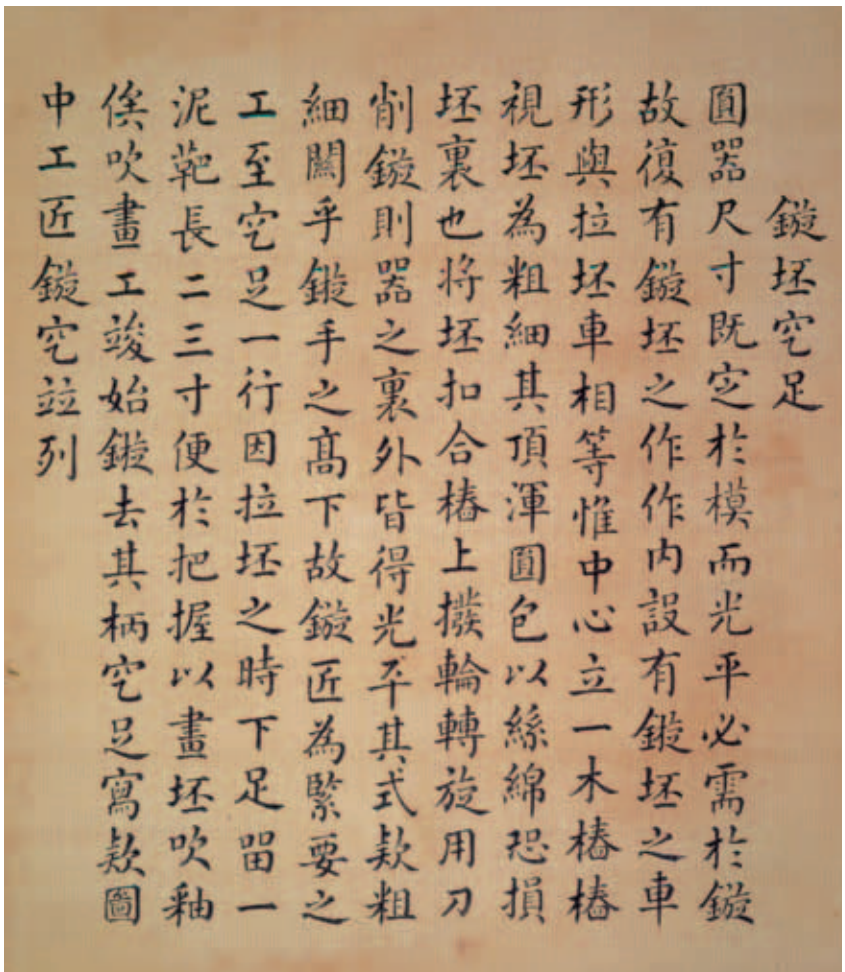 鏇坯空足
圓器尺寸既定於模而光平必需於鏇
故復有鏇坯之作作内設有鏇坯之車
形與拉坯車相等惟中心立一木樁樁
視坯為粗細其頂渾圓包以絲綿恐損
坯裏也將坯扣合樁上撥輪轉旋用刀
削鏇則器之裏外皆得光平其式欵粗
細關乎鏇手之高下故鏇匠為緊要之
工至空足一行因拉坯之時下足留一
泥靶長二三寸便於把握以畫坯吹釉
俟吹畫工竣始鏇去其柄空足寫欵圖
中工匠鏇空竝列